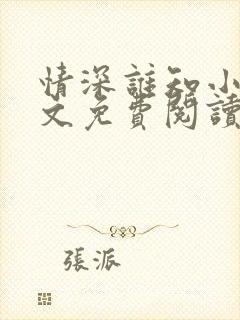 情深誰知小
文免費閱讀
張派